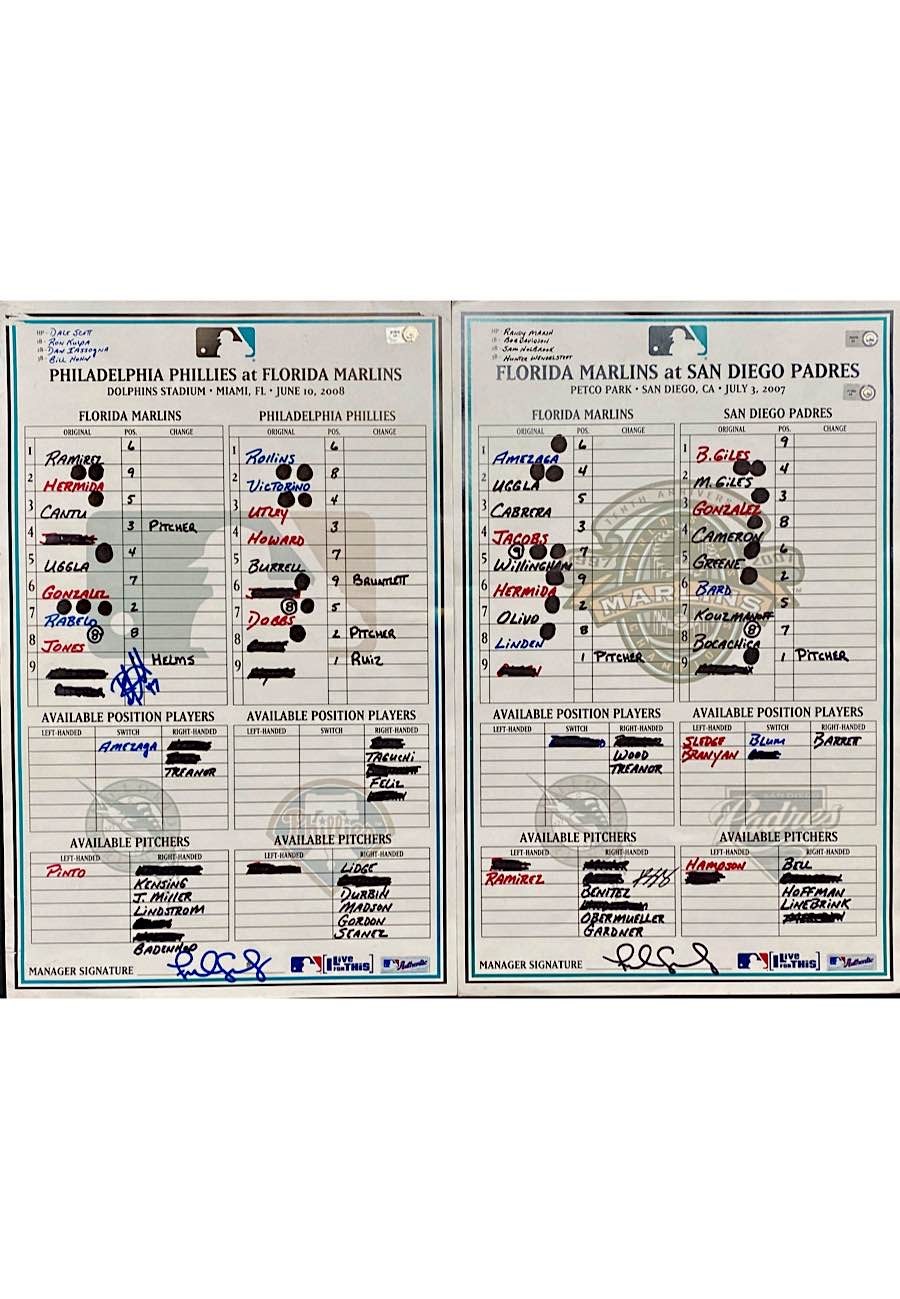 HP - DALE SCOTT
1B - RON KULPA
2B - DAN IASSOGNA
3B - BILL HOHN
PHILADELPHIA PHILLIES at FLORIDA MARLINS
DOLPHINS STADIUM • MIAMI, FL • JUNE 10, 2008
FLORIDA MARLINS PHILADELPHIA PHILLIES
ORIGINAL POS. CHANGE ORIGINAL POS. CHANGE
1 RAMIREZ 6 1 ROLLINS 6
2 HERMIDA 9 2 VICTORINO 8
3 CANTU 5 3 UTLEY 4
4 3 PITCHER 4 HOWARD 3
5 UGGLA 4 5 BURRELL 7
6 GONZALEZ 7 6 9 BRUNTLETT
7 RABELO 2 7 DOBBS 8 5
8 JONES 8 8 8 2 PITCHER
9 HELMS 9 1 RUIZ
AVAILABLE POSITION PLAYERS AVAILABLE POSITION PLAYERS
LEFT-HANDED SWITCH RIGHT-HANDED LEFT-HANDED SWITCH RIGHT-HANDED
AMEZAGA
TAGUCHI
TREANOR
FELIZ
AVAILABLE PITCHERS AVAILABLE PITCHERS
LEFT-HANDED RIGHT-HANDED LEFT-HANDED RIGHT-HANDED
PINTO LIDGE
KENSING
J. MILLER DURBIN
LINDSTROM MADSON
GORDON
SEANEZ
BADENHOP
MANAGER SIGNATURE LIVE FOR THIS Authentic
HP - RANDY MARSH
1B - BOB DAVIDSON
2B - SAM HOLBROOK
3B - HUNTER WENDELSTEDT
FLORIDA MARLINS at SAN DIEGO PADRES
PETCO PARK • SAN DIEGO, CA • JULY 3, 2007
FLORIDA MARLINS SAN DIEGO PADRES
ORIGINAL POS. CHANGE ORIGINAL POS. CHANGE
1 AMEZAGA 6 1 B. GILES 9
2 UGGLA 4 2 M. GILES 4
3 CABRERA 5 3 GONZALEZ 3
4 JACOBS 3 4 CAMERON 8
5 WILLINGHAM 9 7 5 GREENE 6
6 HERMIDA 9 6 BARD 2
7 OLIVO 2 7 KOUZMANOFF 5
8 LINDEN 8 8 BOCACHICA 8 7
9 1 PITCHER 9 1 PITCHER
TENTH ANNIVERSARY
1997 MARLINS 2007
AVAILABLE POSITION PLAYERS AVAILABLE POSITION PLAYERS
LEFT-HANDED SWITCH RIGHT-HANDED LEFT-HANDED SWITCH RIGHT-HANDED
SLEDGE BLUM BARRETT
WOOD BRANYAN
TREANOR
Padres
AVAILABLE PITCHERS AVAILABLE PITCHERS
LEFT-HANDED RIGHT-HANDED LEFT-HANDED RIGHT-HANDED
HAMPSON BELL
RAMIREZ
BENITEZ HOFFMAN
LINEBRINK
OBERMUELLER
GARDNER
MANAGER SIGNATURE LIVE FOR THIS Authentic